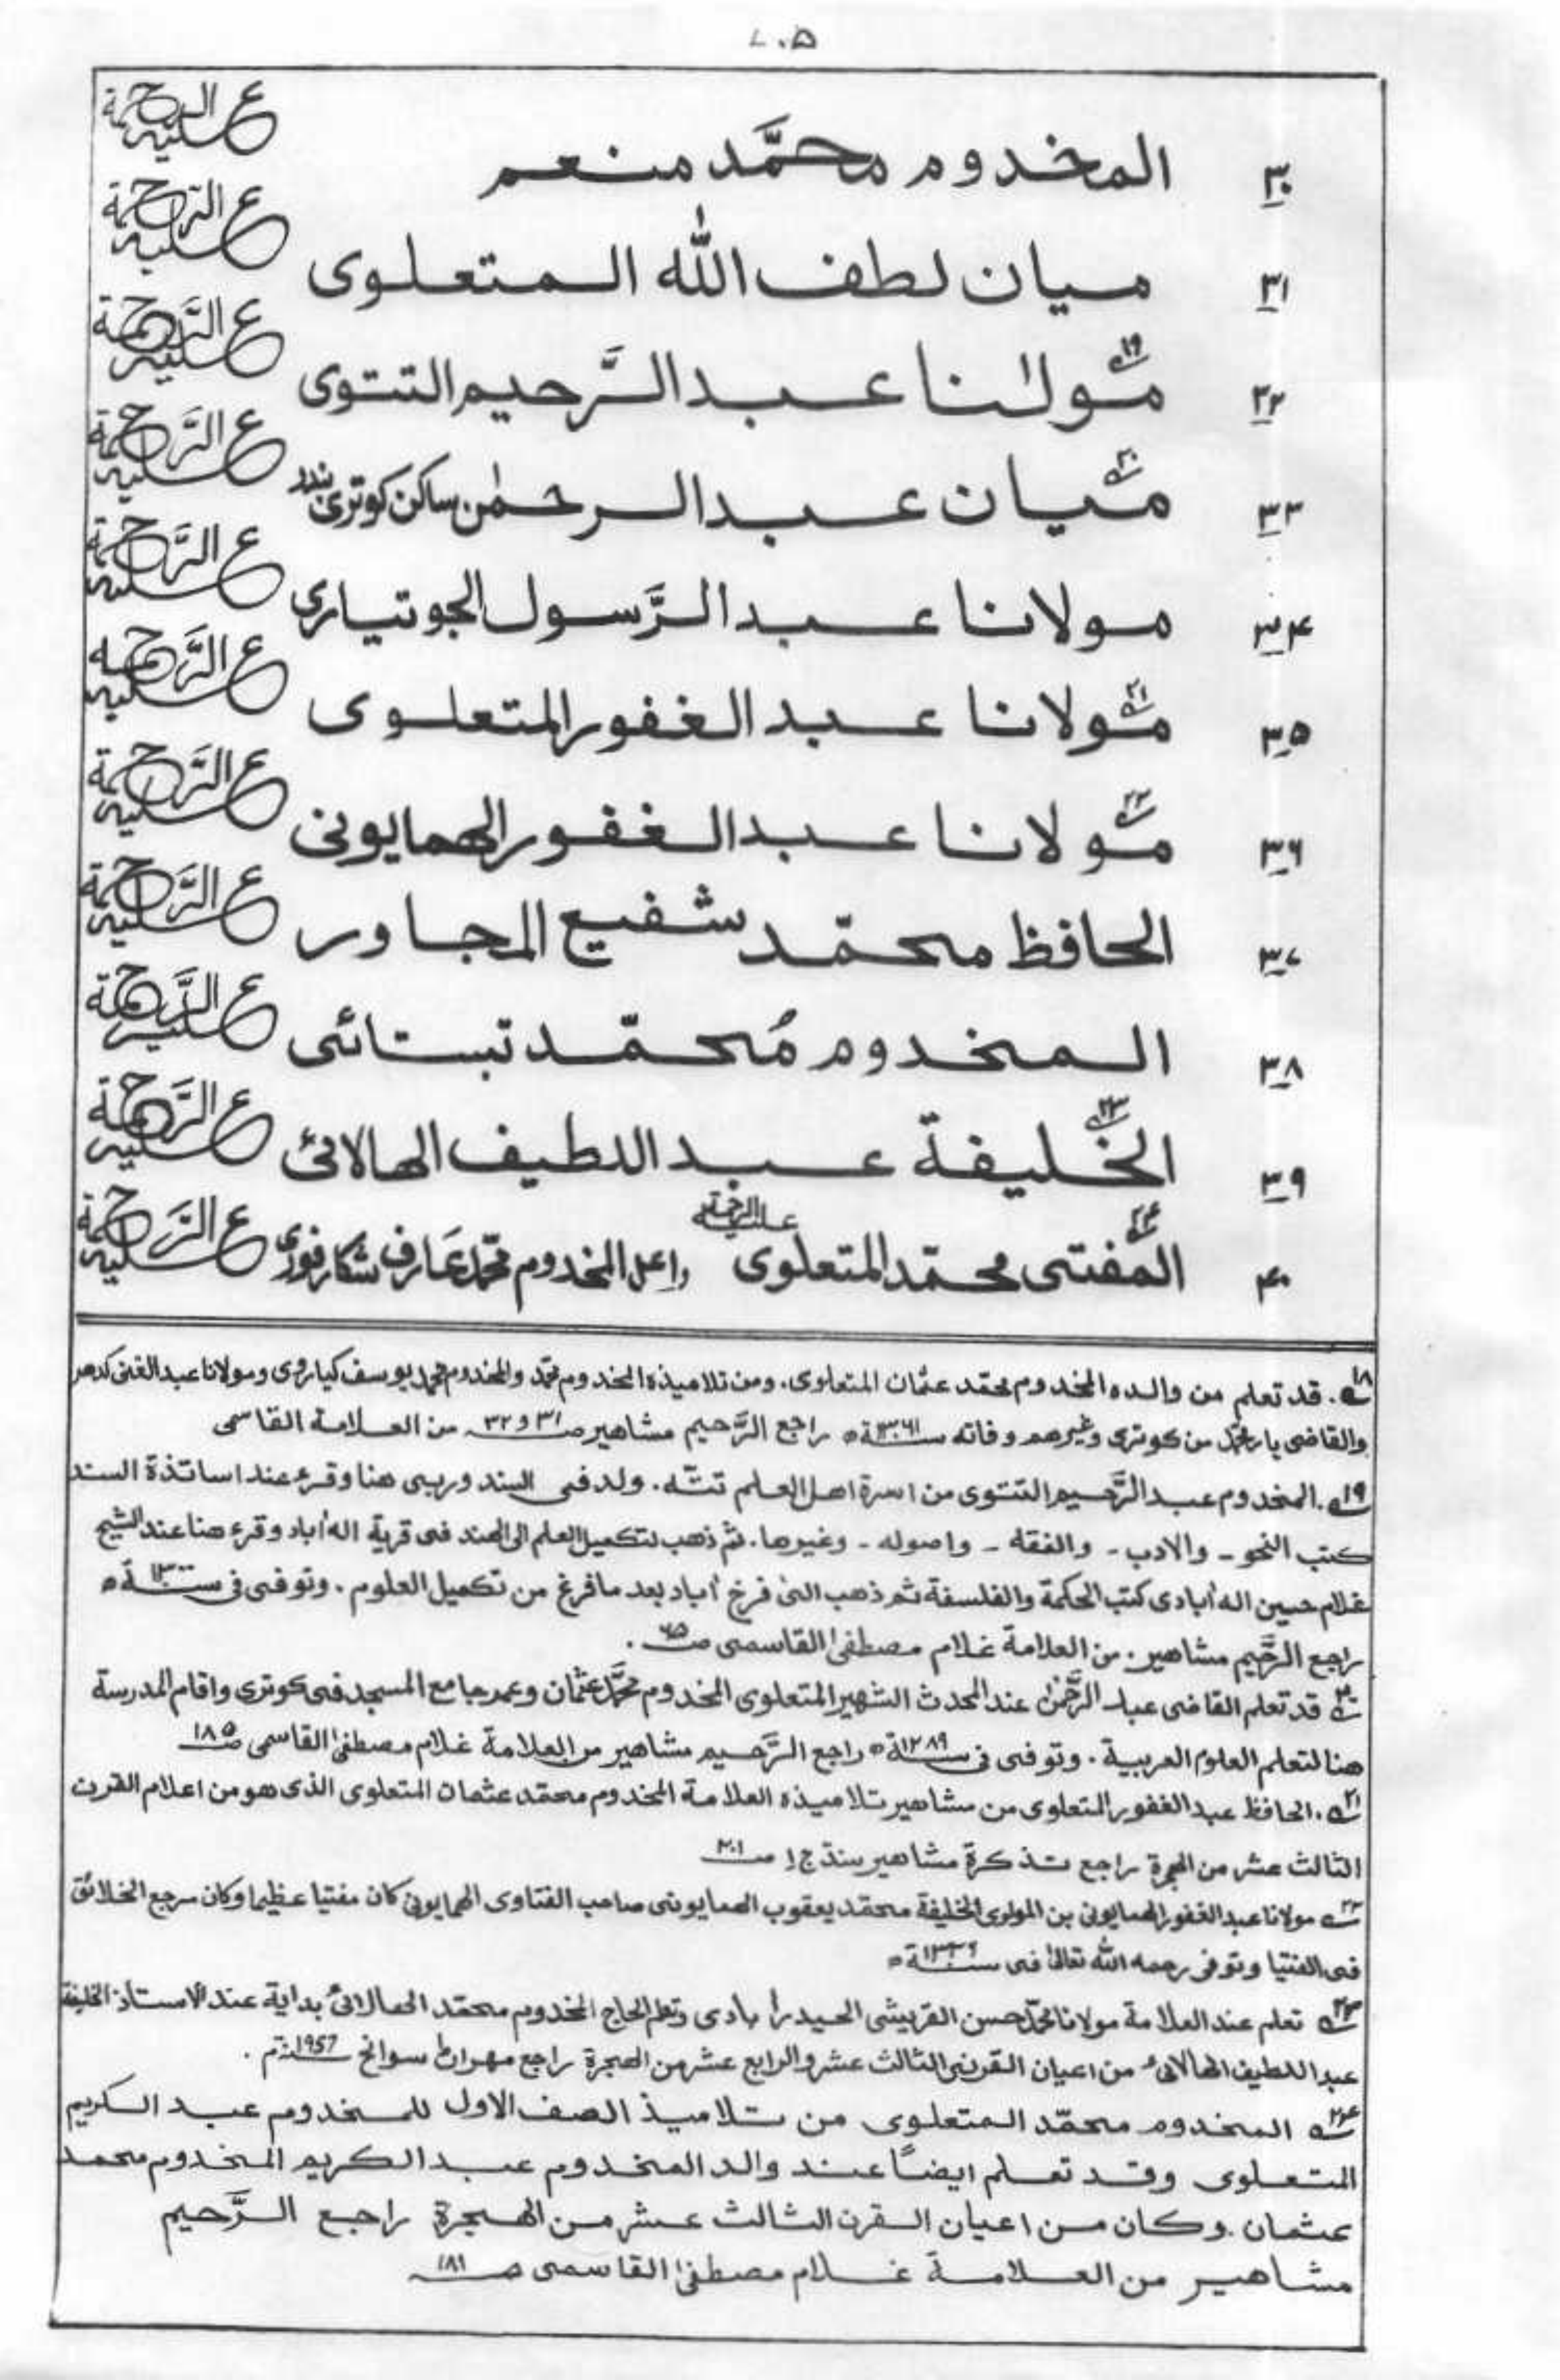 ۷۰۵
۳۰ المخدوم محمَّد منعم عليه الرحمة
۳۱ ميان لطف الله المتعلوى عليه الرَّحمة
۳۲ مولٰنا۱۹ عبد الرَّحيم التتوى عليه الرَّحمة
۳۳ ميان۲۰ عبد الرحمٰن ساكن كوترى بندر عليه الرَّحمة
۳۴ مولانا عبد الرَّسول الجوتيارى عليه الرَّحمة
۳۵ مولانا۲۱ عبد الغفور المتعلوى عليه الرَّحمه
۳۶ مولانا۲۲ عبد الغفور الهمايونى عليه الرَّحمة
۳۷ الحافظ محمّد شفيع المجاور عليه الرَّحمة
۳۸ المخدوم مُحمّد تبستائى عليه الرَّحمة
۳۹ الخليفة۲۳ عبد اللطيف الهالائى عليه الرَّحمة
۴۰ المفتى۲۴ محمّد المتعلوى عليه الرحمة واعل المخدوم محمّد عَارف شكارفورى عليه الرَّحمة
۱۸. قد تعلم من والده المخدوم محمّد عثمان المتعلوى. ومن تلاميذه المخدوم محمّد والمخدوم محمد يوسف كياروى ومولانا عبد الغنى كدهر
والقاضى يار محمّد من كوترى وغيرهم وفاته سنة راجع الرَّحيم مشاهير صـ ۳۱ و ۳۲ من العلامة القاسمى
۱۹. المخدوم عبد الرَّحيم التتوى من اسرة اهل العلم تتّه. ولد فى السند وربى هنا وقرء عند اساتذة السند
كتب النحو ـ والادب ـ والفقه ـ واصوله ـ وغيرها. ثم ذهب لتكميل العلم الى الهند فى قرية اله أباد وقرء هنا عند الشيخ
غلام حسين اله أبادى كتب الحكمة والفلسفة ثم ذهب الىٰ فرخ أباد بعد ما فرغ من تكميل العلوم. وتوفى فى سنة ۱۳۰۰ه
راجع الرَّحيم مشاهير. من العلامة غلام مصطفىٰ القاسمى صـ ۷۵.
۲۰ قد تعلم القاضى عبد الرَّحمٰن عند المحدث الشهير المتعلوى المخدوم محمَّد عثمان وعمر جامع المسجد فى كوترى واقام المدرسة
هنا لتعلم العلوم العربية. وتوفى فى سنة ۱۲۸۹ه راجع الرَّحيم مشاهير من العلامة غلام مصطفىٰ القاسمى صـ ۱۸۵
۲۱. الحافظ عبد الغفور المتعلوى من مشاهير تلاميذه العلامة المخدوم محمّد عثمان المتعلوى الذى هو من اعلام القرن
الثالث عشر من الهجرة راجع تذكرة مشاهير سنڌ ج ۱ صـ ۲۰۱
۲۲ مولانا عبد الغفور الهمايونى بن المولوى الخليفة محمّد يعقوب الهمايونى صاحب الفتاوى الهمايونى كان مفتيا عظيما وكان مرجع الخلائق
فى الفتيا وتوفى رحمه الله تعالىٰ فى سنة ۱۳۳۶ه
۲۳ تعلم عند العلامة مولانا محمّد حسن القريشى الحيدرأبادى وتعلم الحاج المخدوم محمّد الهالائى بداية عند الاستاذ الخليفة
عبد اللطيف الهالائى من اعيان القرنى الثالث عشر والرابع عشر من الهجرة راجع مهران سوانح سنة ۱۹۵۷م.
۲۴ المخدوم محمّد المتعلوى من تلاميذ الصف الاول للمخدوم عبد الكريم
المتعلوى وقد تعلم ايضًا عند والد المخدوم عبد الكريم المخدوم محمد
عثمان. وكان من اعيان القرن الثالث عشر من الهجرة راجع الرَّحيم
مشاهير من العلامة غلام مصطفىٰ القاسمى صـ ۱۸۱